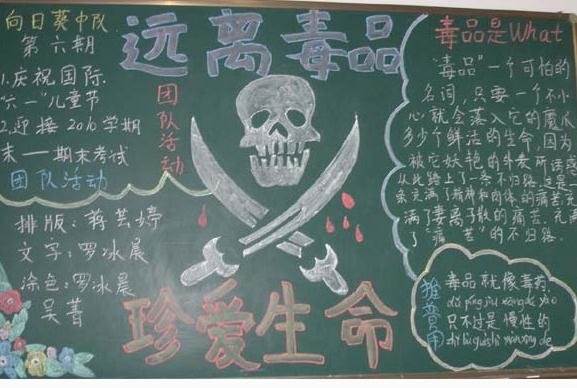 向日葵中队
第六期
1.庆祝国际
六一儿童节
2.迎接2016学期
末——期末考试
团队活动
排版：蒋芸婷
文字：罗冰晨
涂色：罗冰晨
吴菁
远离毒品
团队活动
珍爱生命
毒品是What
"毒品"一个可怕的
名词，只要一个不小
心就会落入它的魔爪
多少个鲜活的生命，因为
被它妖艳的外表所诱惑
从此踏上了一条不归路。这是一
条充满了精神和肉体的痛苦充
满了妻离子散的痛苦.充满
了"痛苦"的不归路.
毒品就像毒药，
dú pǐn jiù xiàng dú yào
只不过是慢性的